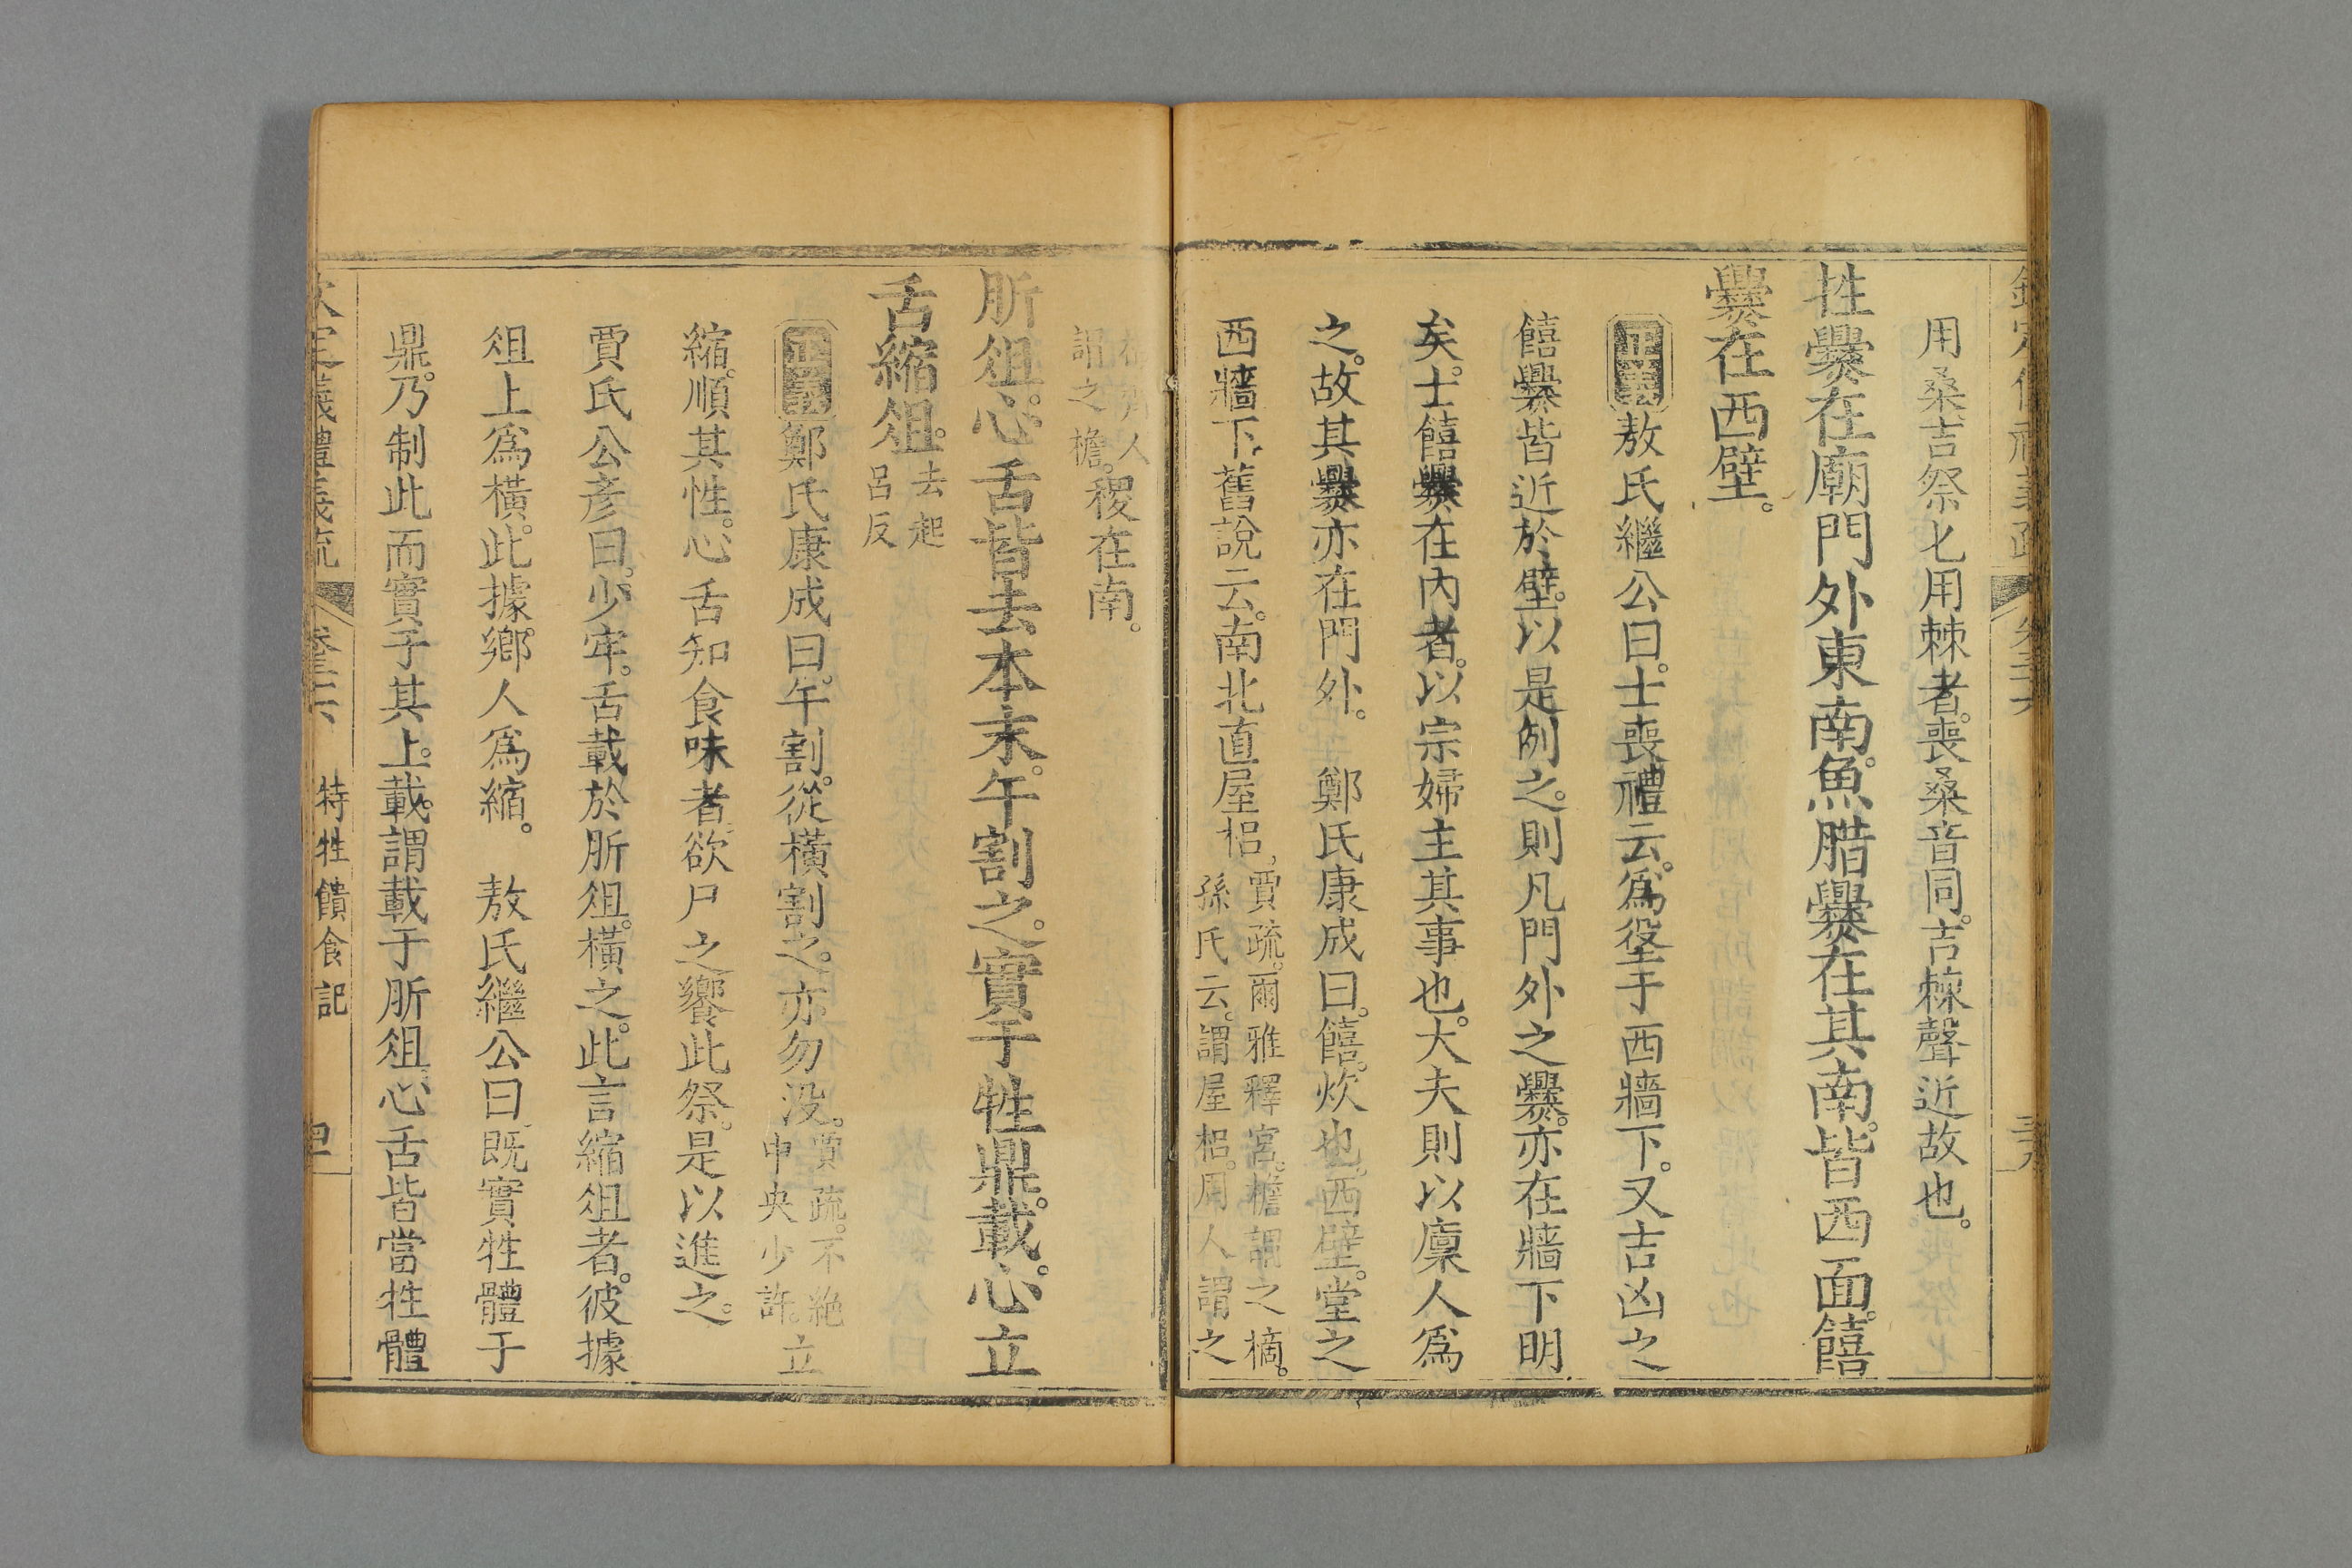 用桑吉祭匕用棘者。喪桑音同。吉棘聲近故也。
牲爨在廟門外東南。魚腊爨在其南。皆西面。饎
爨在西壁。
正義敖氏繼公曰。士喪禮云。爲垼于西牆下。又吉凶之
饎爨皆近於壁。以是例之。則凡門外之爨。亦在牆下明
矣。士饎爨在內者。以宗婦主其事也。大夫則以廩人爲
之。故其爨亦在門外。 鄭氏康成曰。饎。炊也。西壁。堂之
西牆下。舊說云。南北直屋梠。賈疏。爾雅釋宮。檐謂之樀。
孫氏云。謂屋梠。周人謂之
人
謂之檐。稷在南。
肵俎。心舌皆去本末。午割之。實于牲鼎。載。心立
舌縮俎。去起
呂反
正義鄭氏康成曰。午割。從橫割之。亦勿沒。賈疏。不絶
中央少許。立
縮。順其性。心舌知食味者。欲尸之饗此祭。是以進之。
賈氏公彥曰。少牢。舌載於肵俎。橫之。此言縮俎者。彼據
俎上爲橫。此據鄉人爲縮。 敖氏繼公曰。既實牲體于
鼎。乃制此而實于其上。載。謂載于肵俎。心舌皆當牲體
特牲饋食記